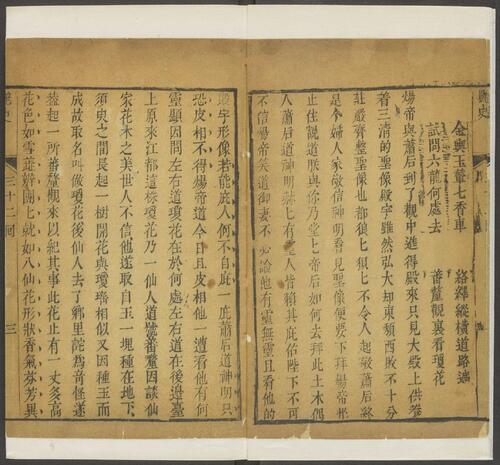 豔史
金輿玉輦七香車　絡繹縱橫道路遙
試問六龍何處去　蕃釐觀裏看瓊花
煬帝與蕭后到了觀中進得殿來只見大殿上供養
著三清的聖像殿宇雖然弘大却東頹西敗不十分
莊嚴齊整聖像也都狼狽不令人起敬蕭后終
是個婦人家敬信神明看見聖像便要下拜煬帝忙
止住說道朕與你乃堂上帝后如何去拜此土木偶
人蕭后道神明赫七有人皆賴其庇佑陛下不可
不信煬帝笑道御妻不必論他有靈無靈且看他的
殿宇形像若能庇人何不自庇一庇蕭后道神明只
恐皮相不得煬帝道今日且皮相他一遭看他有何
靈顯因問左右道瓊花在於何處左右道在後邊臺
上原來江都這株瓊花乃一仙人道號蕃釐因談仙
家花木之美世人不信他遂取白玉一塊種在地下
須臾之間長起一樹開花與瓊瑤相似又因種玉而
成故取名叫做瓊花後仙人去了鄉里詫為奇怪遂
蓋起一所蕃釐觀來以紀其事此花止有一丈多高
花色如雪蕊瓣團七就如八仙花形狀香氣芬芳異
豔史　三十二回　三